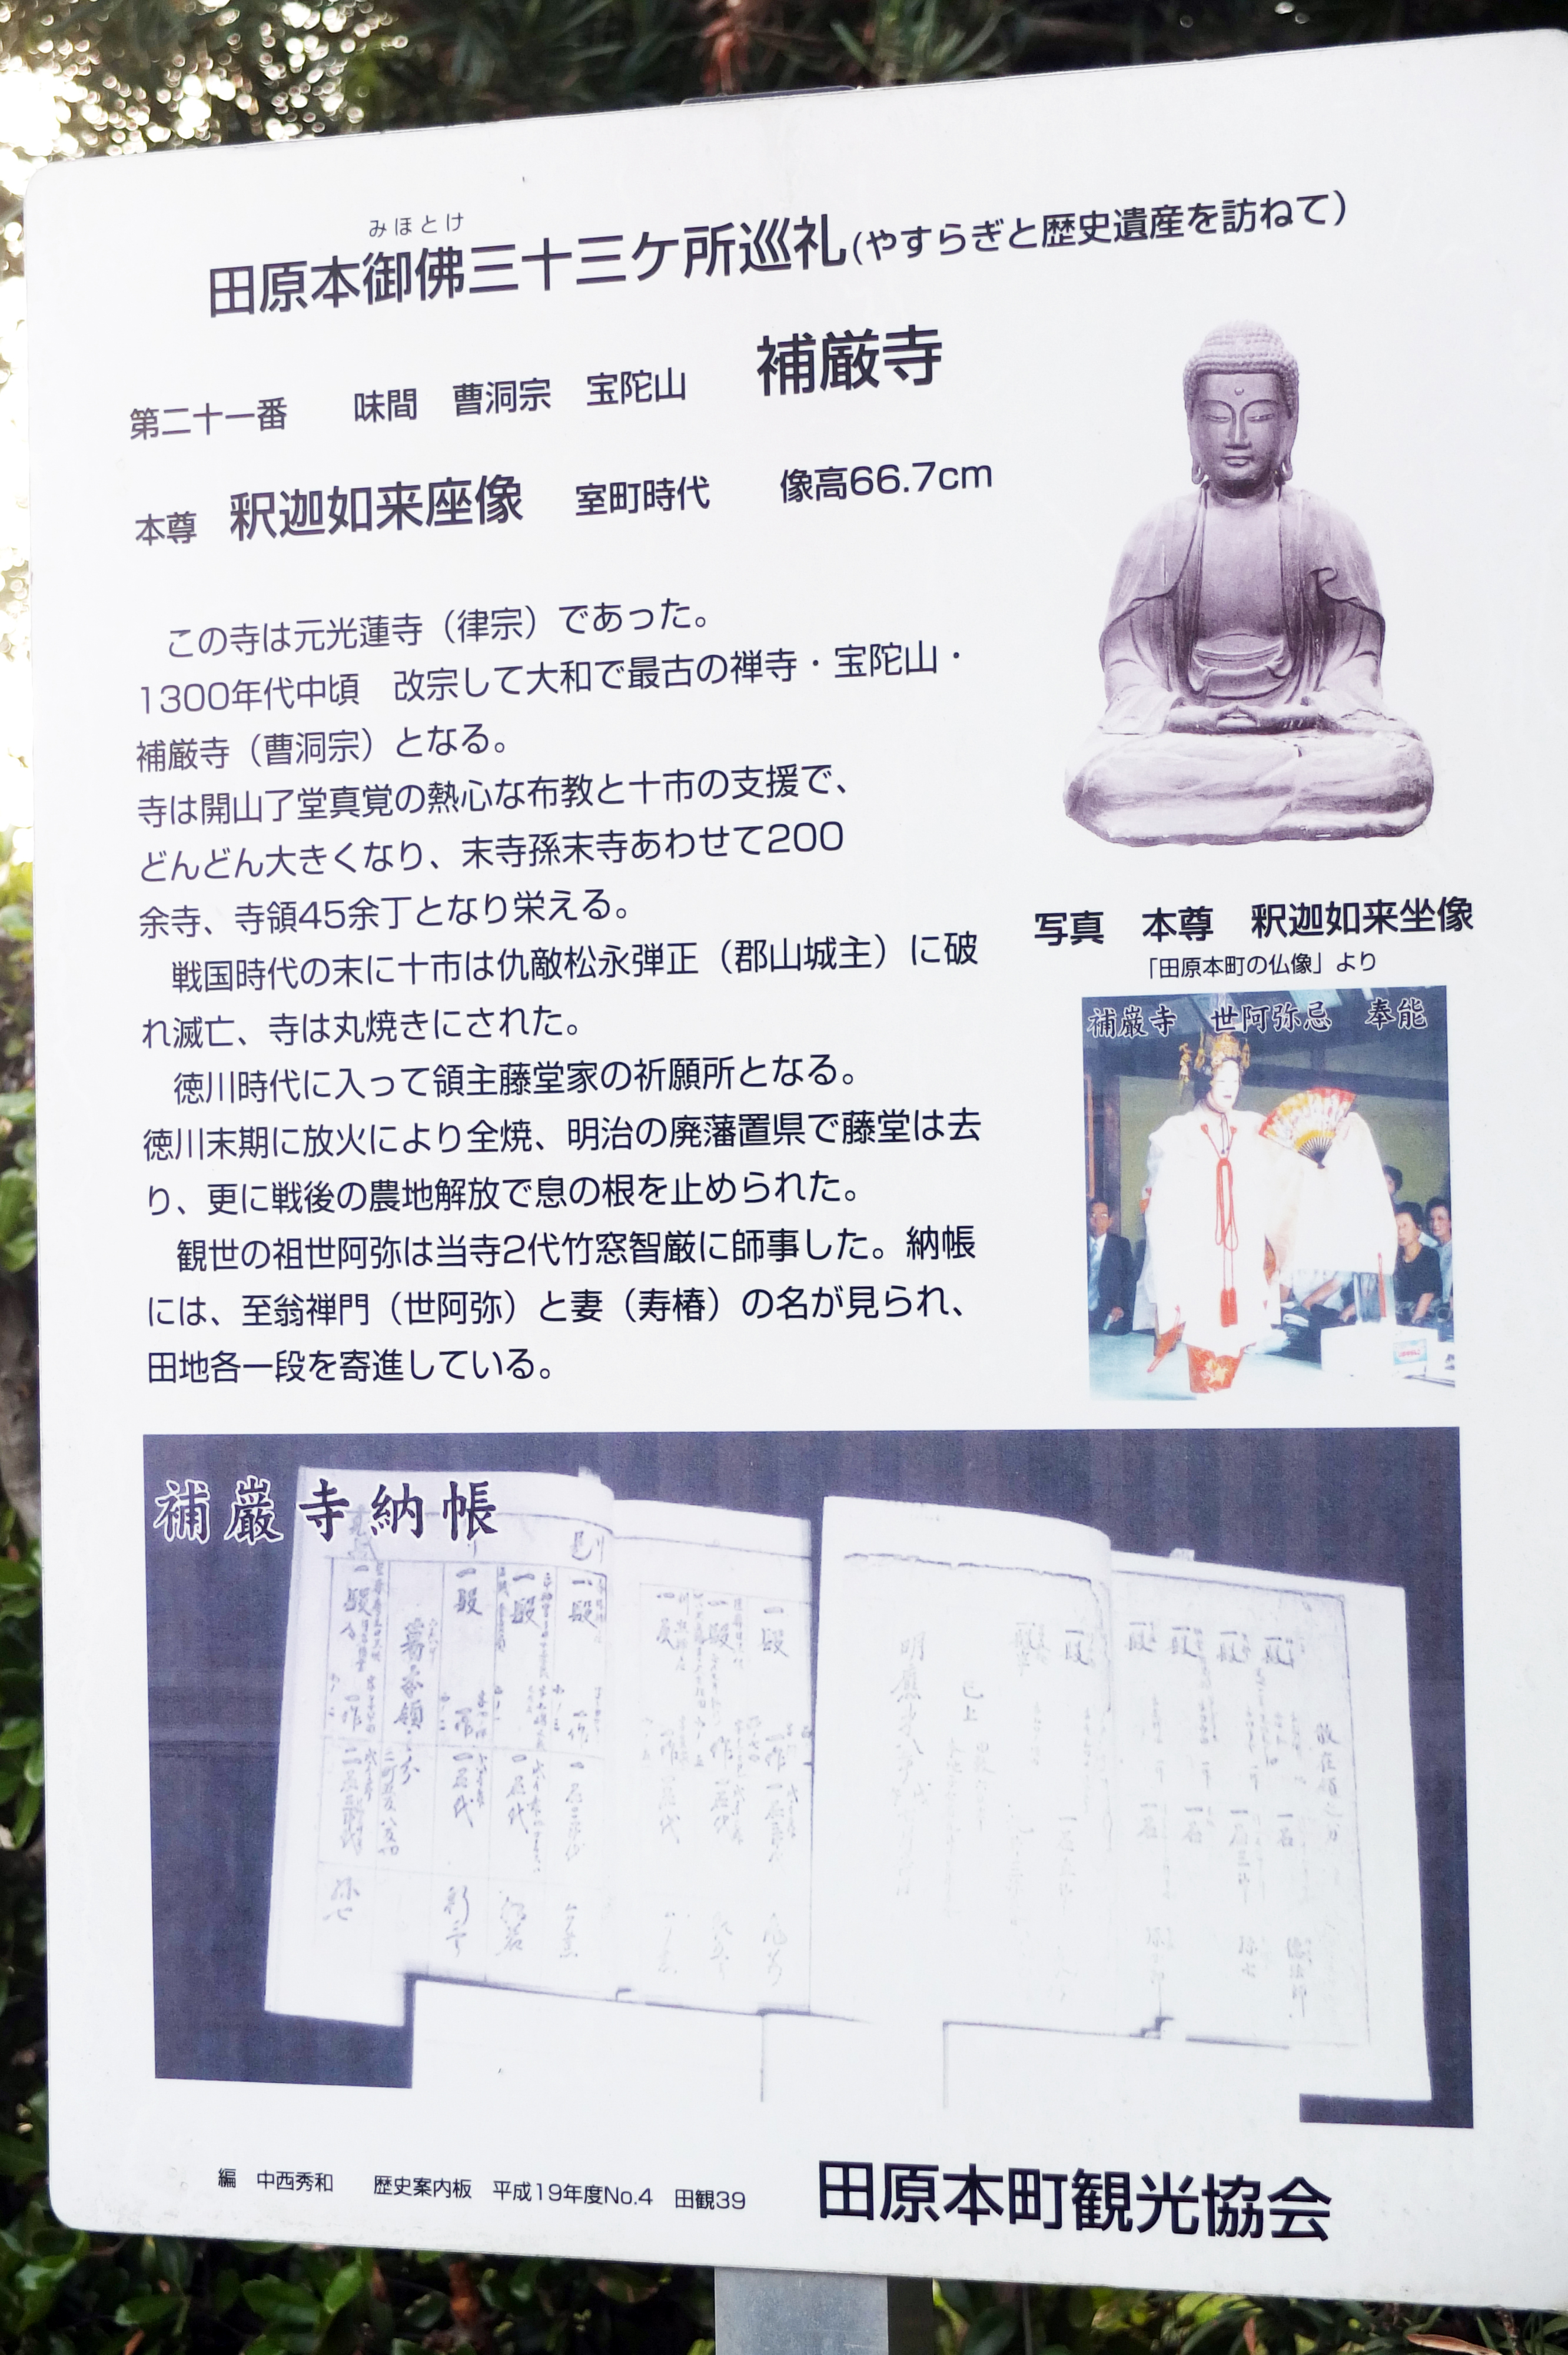 みほとけ
田原本御佛三十三ケ所巡礼(やすらぎと歴史遺産を訪ねて)
第二十一番 味間 曹洞宗 宝陀山 補厳寺
本尊 釈迦如来座像 室町時代 像高66.7cm
この寺は元光蓮寺（律宗）であった。
1300年代中頃 改宗して大和で最古の禅寺・宝陀山・
補厳寺（曹洞宗）となる。
寺は開山了堂真覚の熱心な布教と十市の支援で、
どんどん大きくなり、末寺孫末寺あわせて200
余寺、寺領45余丁となり栄える。
戦国時代の末に十市は仇敵松永弾正（郡山城主）に破
れ滅亡、寺は丸焼きにされた。
徳川時代に入って領主藤堂家の祈願所となる。
徳川末期に放火により全焼、明治の廃藩置県で藤堂は去
り、更に戦後の農地解放で息の根を止められた。
観世の祖世阿弥は当寺2代竹窓智厳に師事した。納帳
には、至翁禅門（世阿弥）と妻（寿椿）の名が見られ、
田地各一段を寄進している。
写真 本尊 釈迦如来坐像
「田原本町の仏像」より
補巌寺 世阿弥忌 奉能
補巌寺納帳
編 中西秀和 歴史案内板 平成19年度No.4 田観39
田原本町観光協会